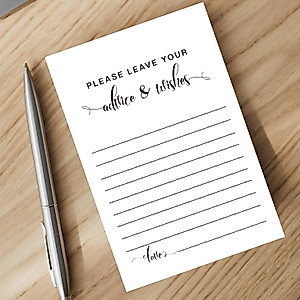 PLEASE LEAVE YOUR
advice & wishes
love,